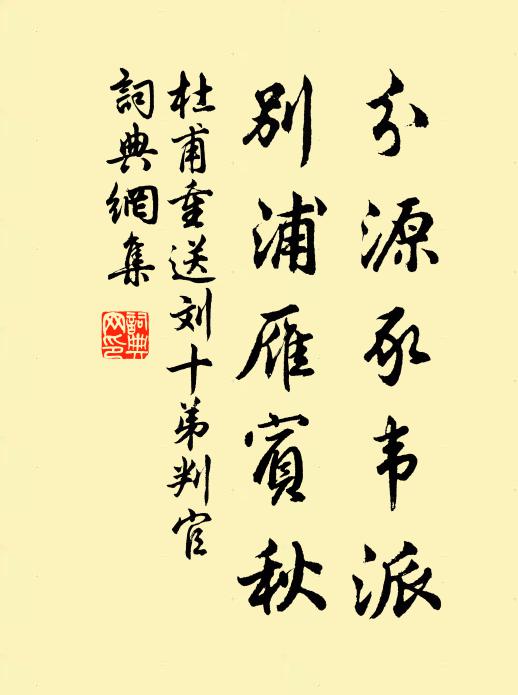 分源豕韦派
别浦雁賓秋
杜甫重送刘十弟判官
詞典網集
詞典
网印